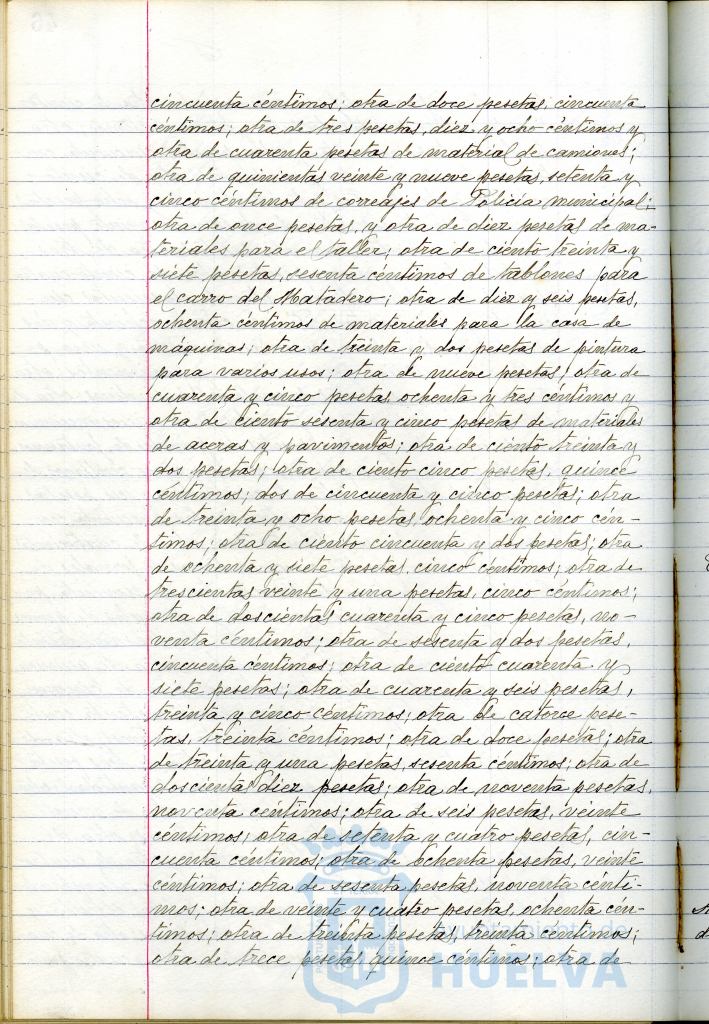 cincuenta céntimos; otra de doce pesetas, cincuenta
céntimos; otra de tres pesetas, diez y ocho céntimos y
otra de cuarenta pesetas de material de camiones;
otra de quinientas veinte y nueve pesetas, setenta y
cinco céntimos de correajes de Policía municipal;
otra de once pesetas, y otra de diez pesetas de ma-
teriales para el taller; otra de ciento treinta y
siete pesetas, sesenta céntimos de tablones para
el carro del Matadero; otra de diez y seis pesetas,
ochenta céntimos de materiales para la casa de
máquinas; otra de treinta y dos pesetas de pintura
para varios usos; otra de nueve pesetas; otra de
cuarenta y cinco pesetas, ochenta y tres céntimos y
otra de ciento sesenta y cinco pesetas de materiales
de aceras y pavimentos; otra de ciento treinta y
dos pesetas; otra de ciento cinco pesetas, quince
céntimos; dos de cincuenta y cinco pesetas; otra
de treinta y ocho pesetas, ochenta y cinco cén-
timos; otra de ciento cincuenta y dos pesetas; otra
de ochenta y siete pesetas, cinco céntimos; otra de
trescientas veinte y una pesetas, cinco céntimos;
otra de doscientas cuarenta y cinco pesetas, no-
venta céntimos; otra de sesenta y dos pesetas,
cincuenta céntimos; otra de ciento cuarenta y
siete pesetas; otra de cuarenta y seis pesetas,
treinta y cinco céntimos; otra de catorce pese-
tas, treinta céntimos; otra de doce pesetas; otra
de treinta y una pesetas, sesenta céntimos; otra de
doscientas diez pesetas; otra de noventa pesetas,
noventa céntimos; otra de seis pesetas, veinte
céntimos; otra de setenta y cuatro pesetas, cin-
cuenta céntimos; otra de ochenta pesetas, veinte
céntimos; otra de sesenta pesetas, noventa cénti-
mos; otra de veinte y cuatro pesetas, ochenta cén-
timos; otra de treinta pesetas, treinta céntimos;
otra de trece pesetas, quince céntimos; otra de
HUELVA